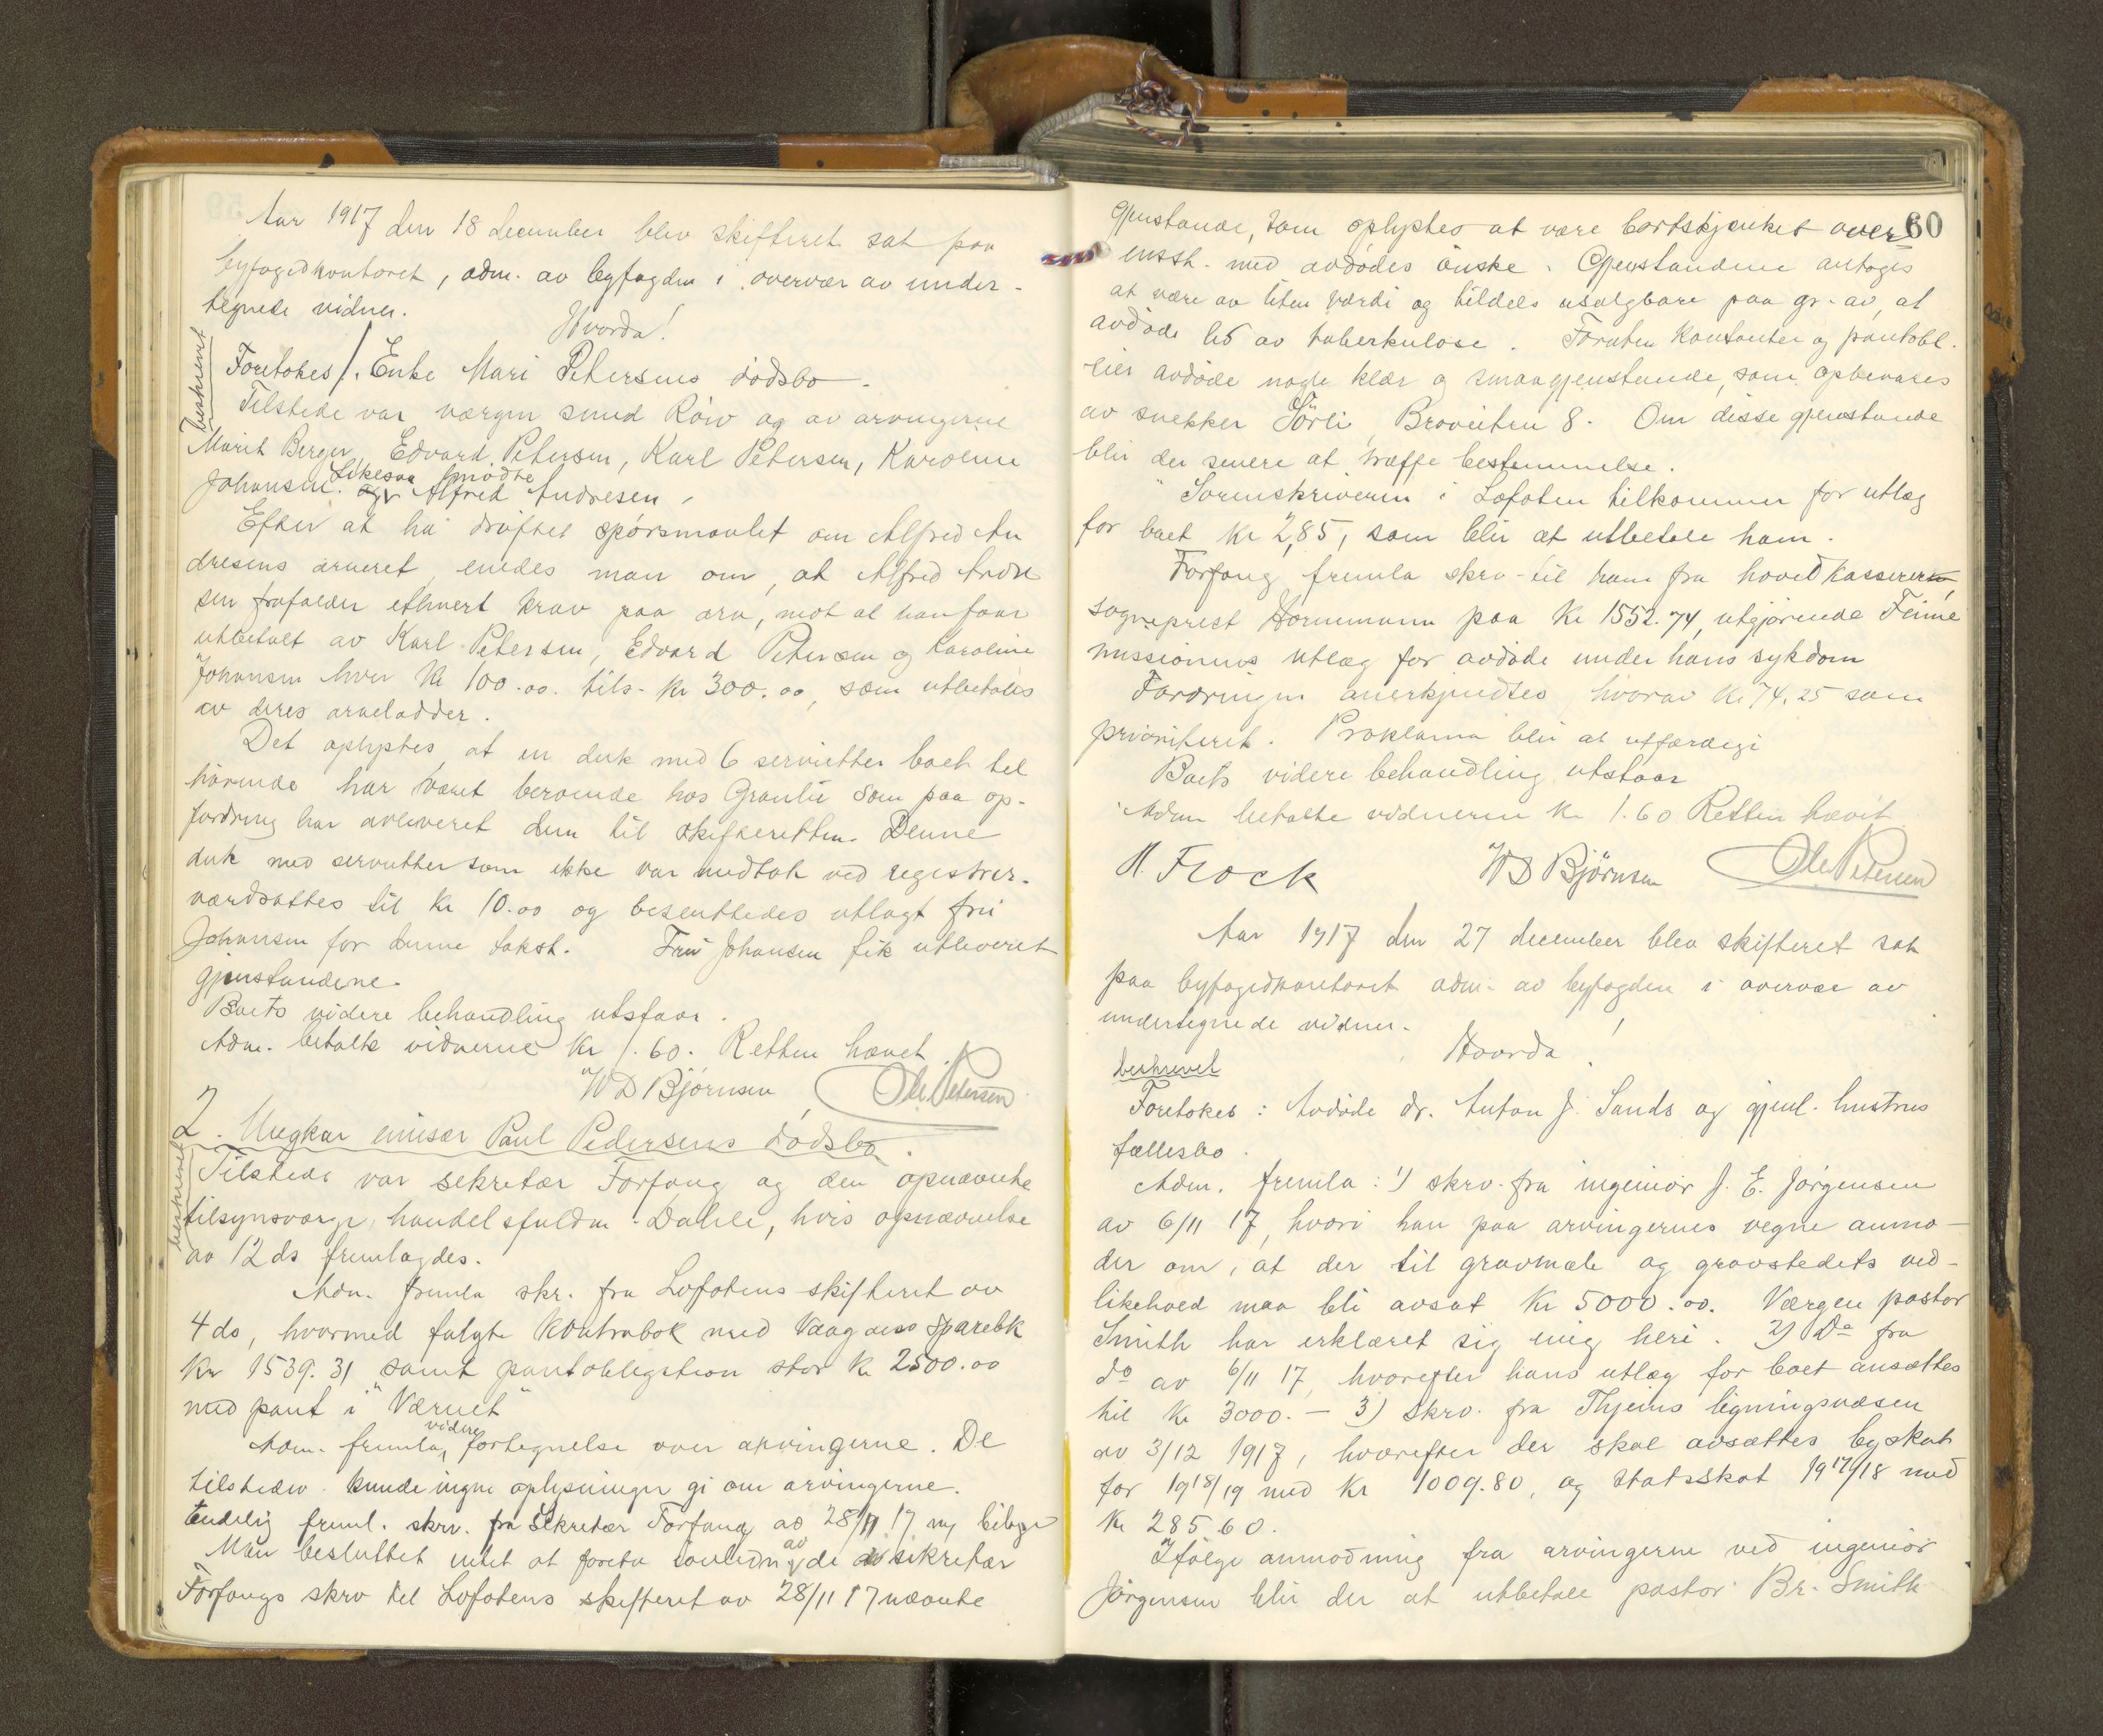 Aar 1917 den 18 december blev skifteret sat paa
byfogedkontoret, adm. av byfogden i overvær av under-
tegnede vidner.
Hvorda!
Beskrevet
Foretokes 1. Enke Mari Petersens dødsbo.
Tilstede var værgen smed Røiv og av arvingerne
Marit Berger, Edvard Petersen, Karl Petersen, Karoline
Johansen. Likesaa mødte Alfred Andresen.
Efter at ha drøftet spørsmaalet om Alfred An
dresens arveret enedes man om, at Alfred Andre
sen frafalder ethvert krav paa arv, mot at han faar
utbetalt av Karl Petersen, Edvard Petersen og Karoline
Johansen hver kr 100.00. tils. kr 300.00, som utbetales
av deres arvelodder.
Det oplystes, at en duk med 6 servietter boet til
hørende har været beroende hos Granlie som paa op-
fordring har avleveret dem til skifteretten. Denne
duk med servietter som ikke var medtat ved registrer.
værdsattes til kr 10.00 og besluttedes utlagt fru
Johansen for denne takst. Fru Johansen fik utleveret
gjenstandene.
Boets videre behandling utstaar.
Adm. betalte vidnerne kr 1.60. Retten hævet.
WD Bjørnsen Ole Petersen
2. Ungkar emisær Paul Pedersens dødsbo.
beskrevet
Tilstede var sekretær Forfang og den opnævnte
tilsynsværge, handelsfuldm. Dahle, hvis opnævnelse
av 12 ds fremlagdes.
Adm. fremla skr. fra Lofotens skifteret av
4 ds, hvormed fulgte kontrabok med Vaagans Sparebk
kr 1539.31 samt pantobligation stor kr 2500.00
med pant i "Værnet"
Adm. fremla videre fortegnelse over arvingerne. De
tilstedev. kunde ingen oplysninger gi om arvingerne.
Endelig freml. skrv. fra sekretær Forfang av 28/11 17 m/ bilage
Man besluttet intet at foreta i anledn av de i sekretær
Forfangs skrv til Lofotens skifteret av 28/11 17 nævnte
60
gjenstande, som oplystes at være bortskjænket over
ensst. med avdødes ønske. Gjenstandene antages
at være av liten værdi og tildels usalgbare paa gr. av, at
avdøde led av tuberkulose. Foruten kontanter og pantobl.
eier avdøde nogle klær og smaagjenstande, som opbevares
av snekker Sørli, Broveiten 8. Om disse gjenstande
blir der senere at træffe bestemmelse.
Sorenskriveren i Lofoten tilkommer for utlæg
for boet kr 2,85, som blir at utbetale ham.
Forfang fremla skrv. til ham fra hovedkasserer,
sogneprest Hornemann paa kr 1552.74, utgjørende Finne
missionens utlæg for avdøde under hans sykdom
Fordringen anerkjendtes, hvorav kr 74,25 som
prioriteret. Proklama blir at utfærdige
Boets videre behandling utstaar
Adm betalte vidnerne kr 1.60 Retten hævet
H. Flock WD Bjørnsen Ole Petersen
Aar 1917 den 27 december blev skifteret sat
paa byfogedkontoret adm. av byfogden i overvær av
undertegnede vidner.
Hvorda!
beskrevet
Foretokes: Avdøde dr. Anton J. Sands og gjenl. hustrus
fællesbo.
Adm. fremla: 1) skrv. fra ingeniør J. E. Jørgensen
av 6/11 17, hvori han paa arvingernes vegne anmo-
der om, at der til gravmæle og gravstedets ved-
likehold maa bli avsat kr 5000.00. Værgen pastor
Smith har erklæret sig enig heri. 2) Do fra
do av 6/11 17, hvorefter hans utlæg for boet ansættes
til kr 3000.- 3) Skrv. fra Thjems ligningsvæsen
av 3/12 1917, hvorefter der skal avsættes byskat
for 1918/19 med kr 1009.80, og statsskat 1917/18 med
kr 285.60.
Ifølge anmodning fra arvingerne ved ingeniør
Jørgensen blir der at utbetale pastor Br. Smith